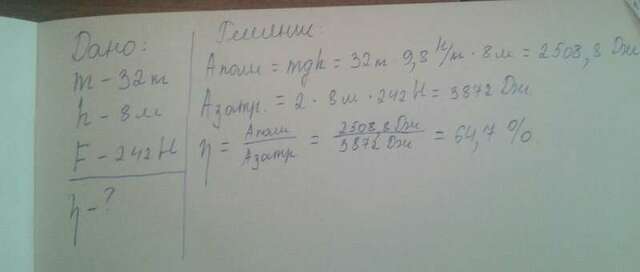 Дано:
m - 32 т
h - 8 м
F - 242 Н
η - ?
Решение:
A полн = mgh = 32 т · 9,8 Н/т · 8 м = 2508,8 Дж
A затр. = 2 · 8 м · 242 Н = 3872 Дж
η = A полн / A затр = 2508,8 Дж / 3872 Дж = 64,7 %